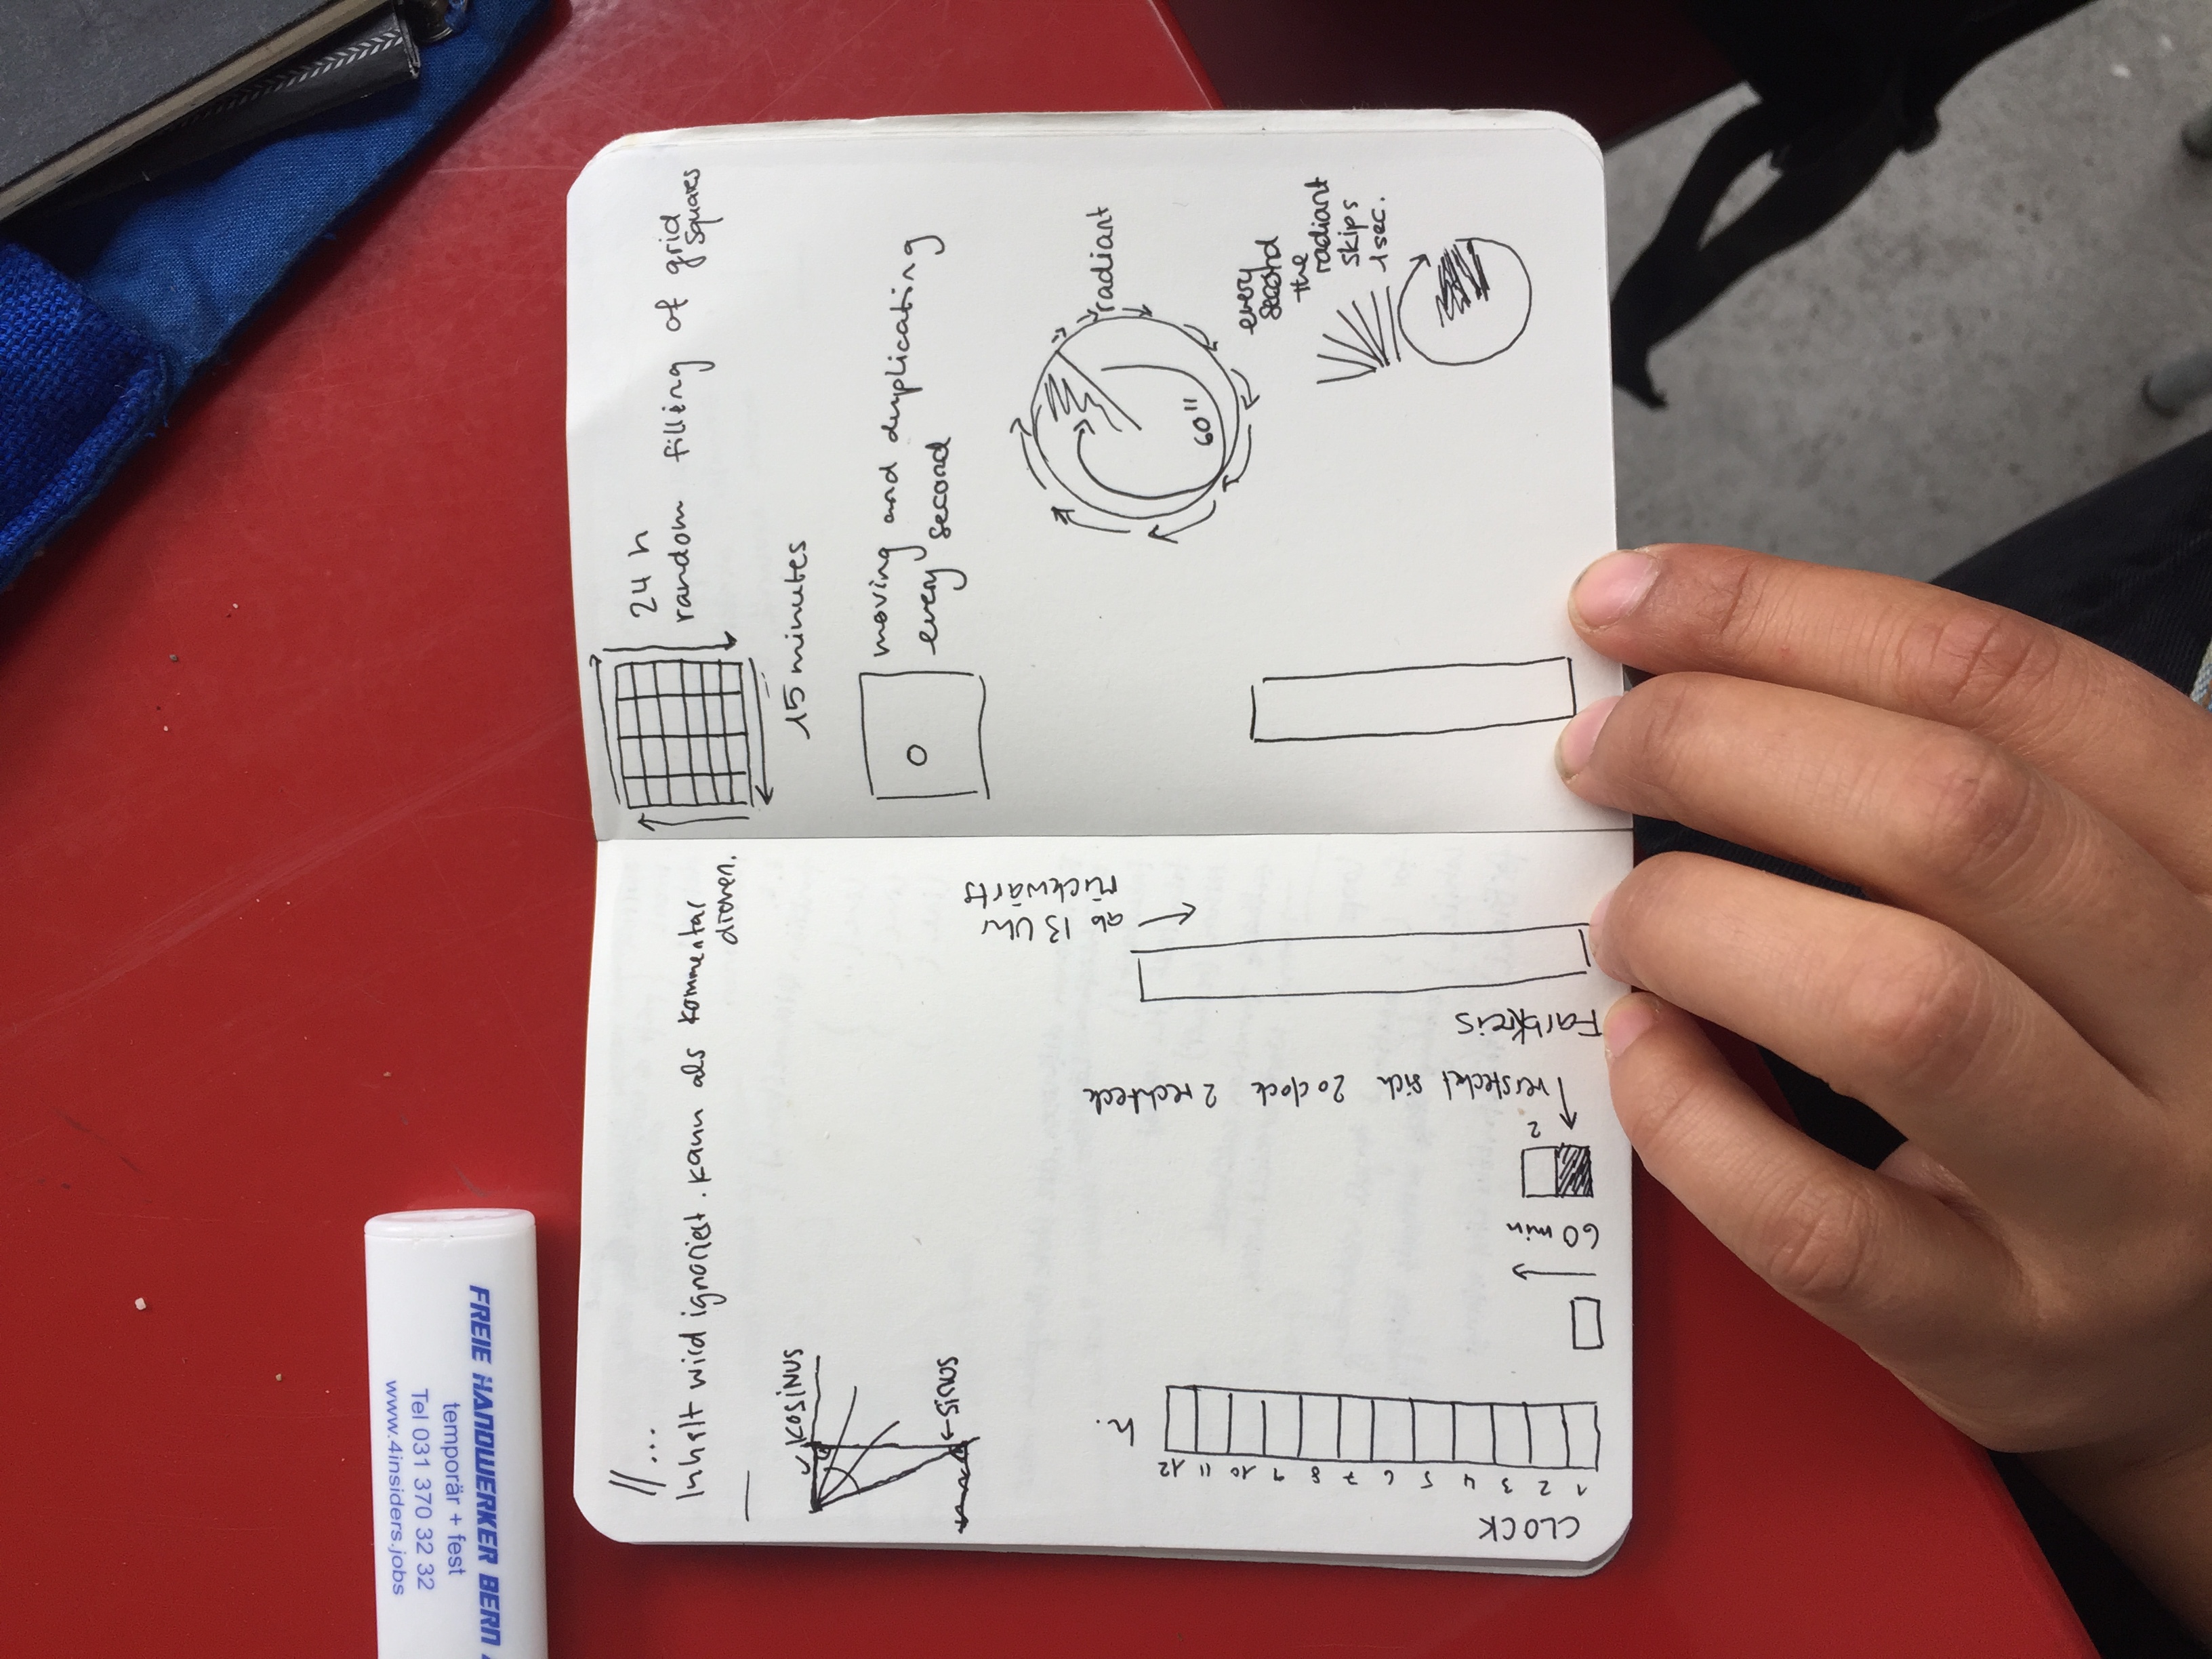 www.4insiders.jobs
Tel 031 370 32 32
temporär + fest
FREIE HANDWERKER BERN
//...
Inhalt wird ignoriert. kann als Kommentar
dienen.
KOSINUS
SINUS
CLOCK
1 2 3 4 5 6 7 8 9 10 11 12
h.
60 min
2
versteckt sich 2o clock 2 rechteck
Farbkreis
ab 13 Uhr
rückwärts
24 h
random filling of grid
squares
15 minutes
moving and duplicating
every second
radiant
60"
every
second
the
radiant
skips
1sec.